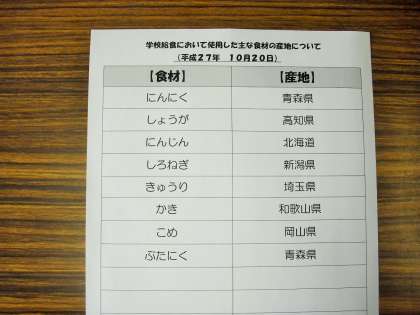 学校給食において使用した主な食材の産地について
（平成２７年　１０月２０日）
【食材】　【産地】
にんにく　青森県
しょうが　高知県
にんじん　北海道
しろねぎ　新潟県
きゅうり　埼玉県
かき　和歌山県
こめ　岡山県
ぶたにく　青森県